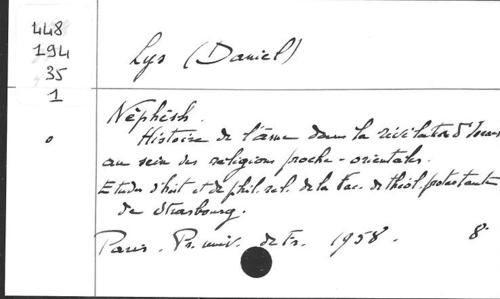 448
194
35
1
Lys (Daniel)
Nèphèsh.
Histoire de l'âme dans la révélation d'Israël
au sein des religions proche-orientales.
Etudes d'hist. et de phil. rel. de la Fac. de théol. protestante
de Strasbourg.
Paris. Pr. univ. de Fr. 1958. 8°